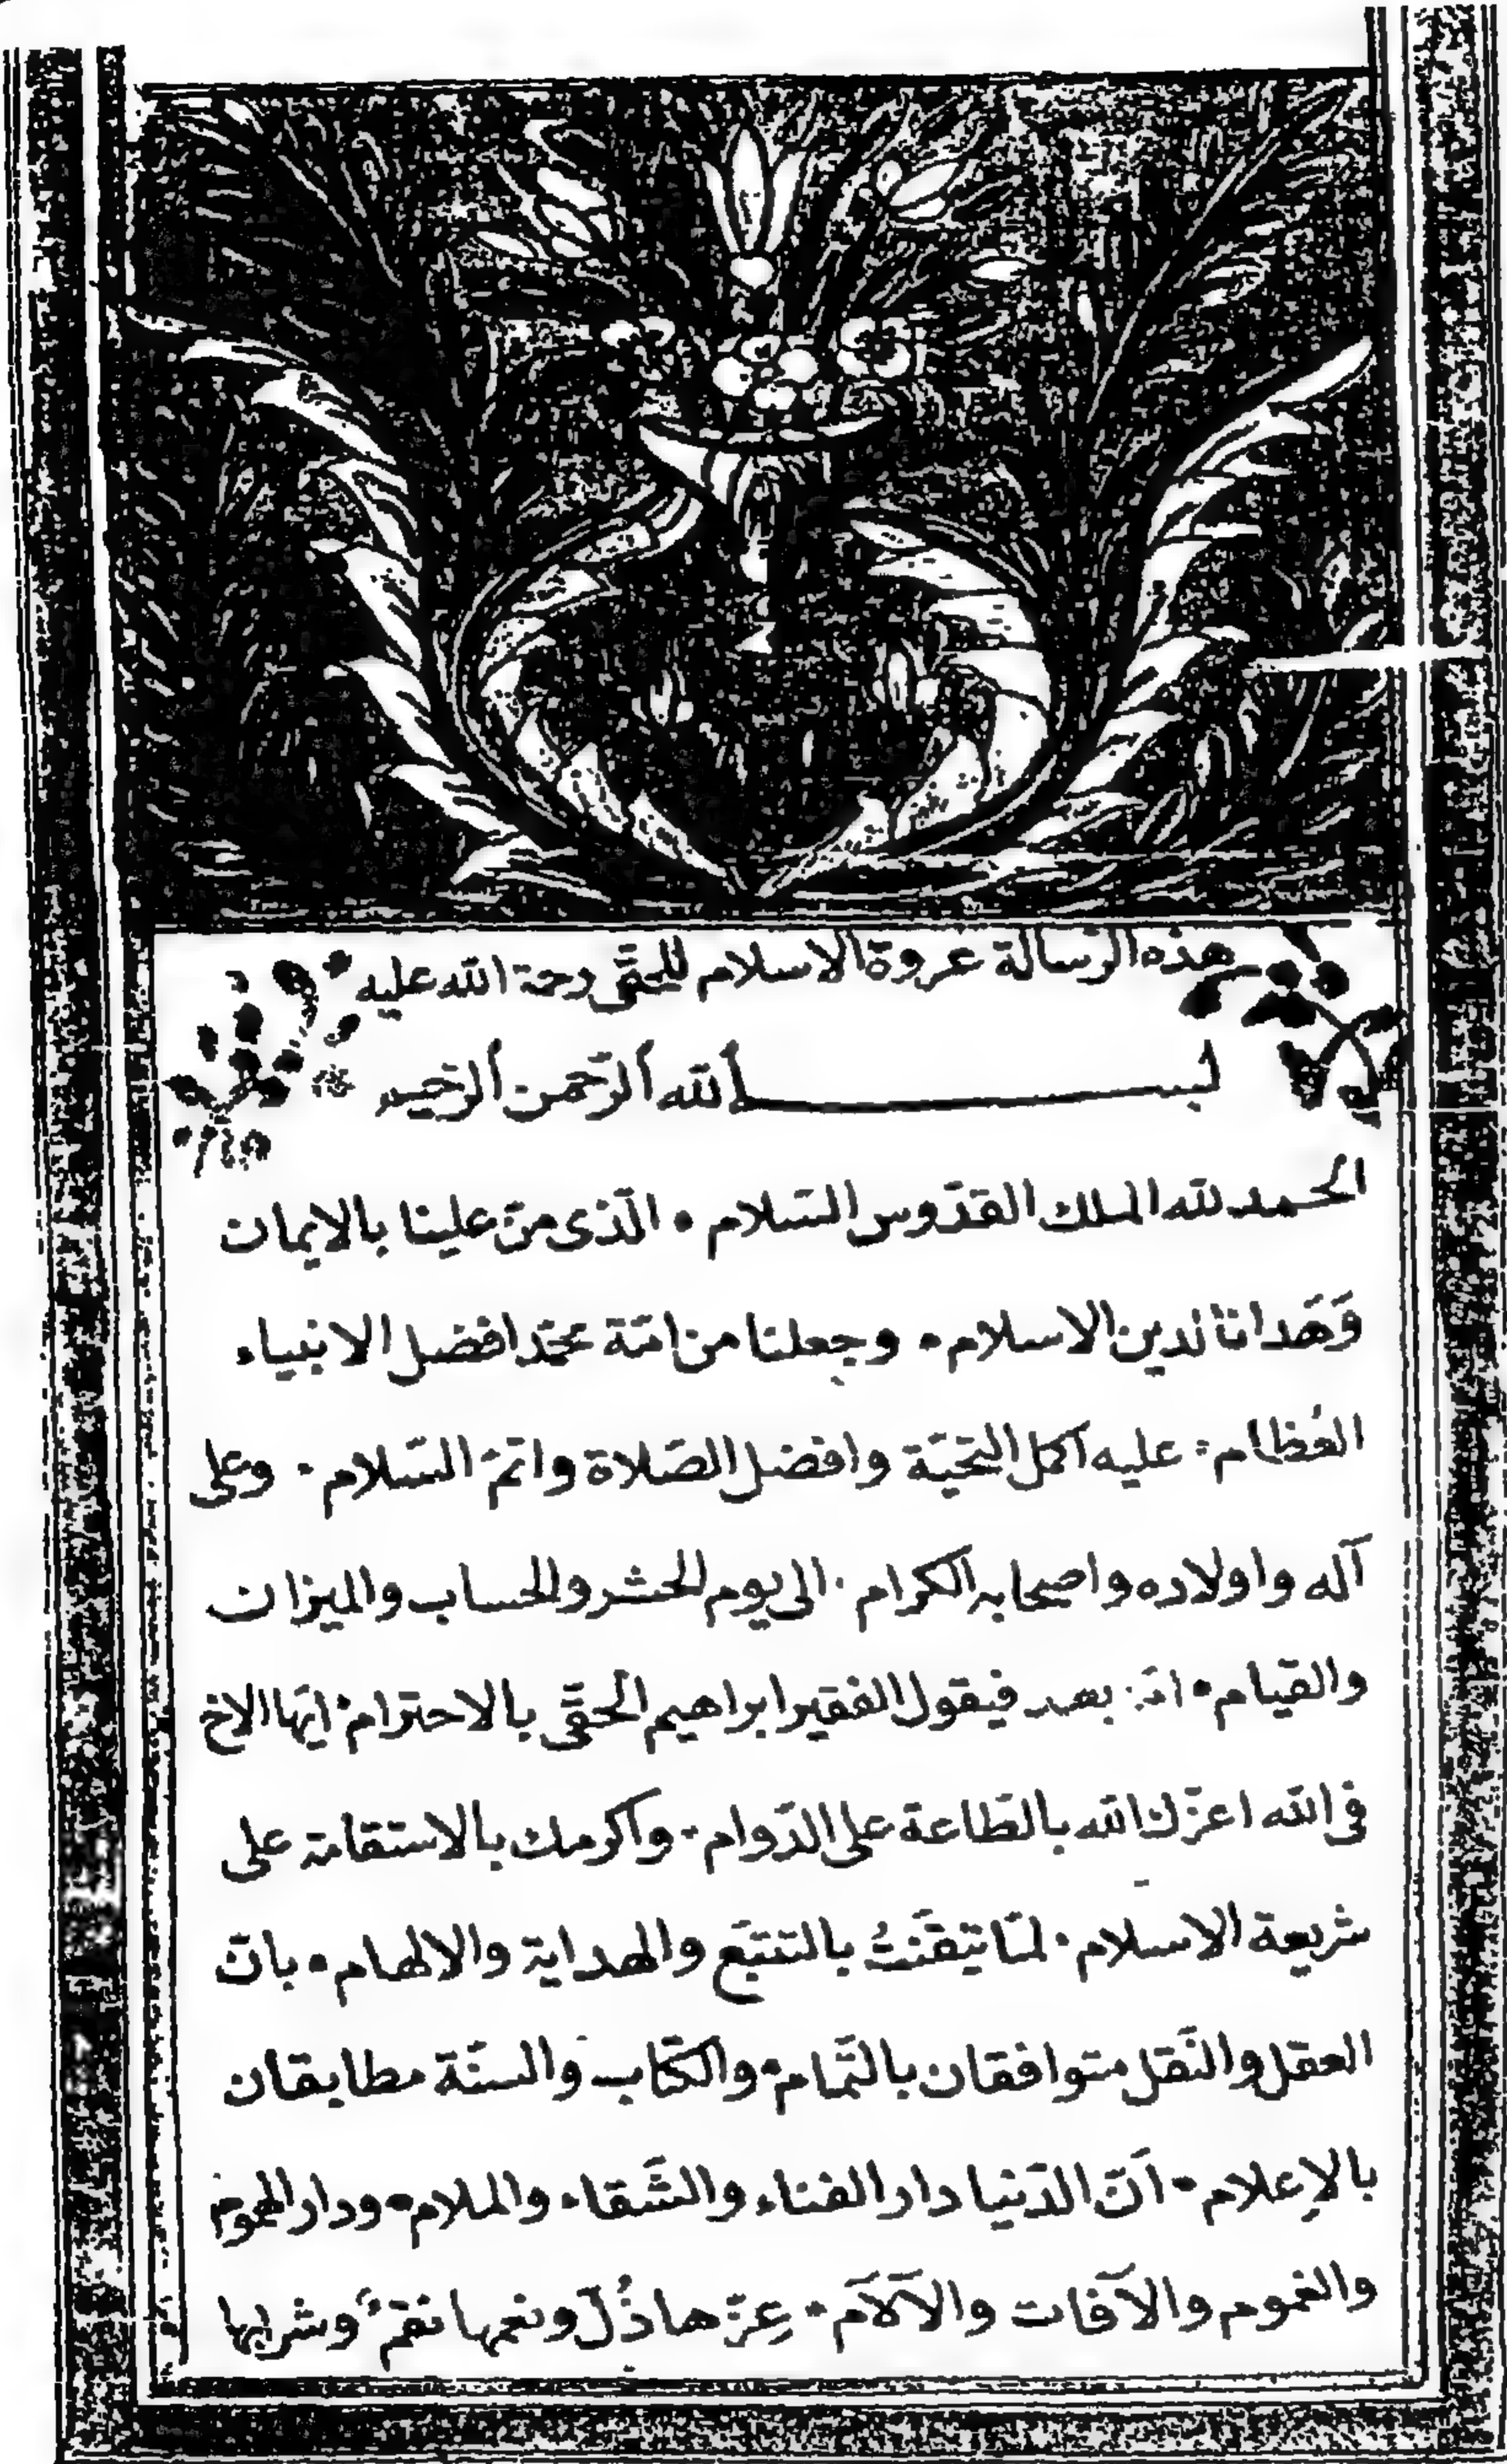 هذه الرسالة عروة الاسلام للحقّى رحمة الله عليه
بسم الله الرّحمن الرّحيم
الحمد لله الملك القدّوس السّلام • الّذى منّ علينا بالايمان
وَهَدانا لدين الاسلام • وجعلنا من امّة محمّد افضل الانبياء
العُظام • عليه اكمل التّحيّة وافضل الصّلاة واتمّ السّلام • وعلى
آله واولاده واصحابه الكرام • الى يوم الحشر والحساب والميزان
والقيام • امّا بعد فيقول الفقير ابراهيم الحقّى بالاحترام • ايّها الاخ
فى الله اعزّك الله بالطّاعة على الدّوام • واكرمك بالاستقامة على
شريعة الاسلام • لمّا تيقّنتُ بالتتبّع والهداية والالهام • بانّ
العقل والنّقل متوافقان بالتّمام • والكتاب والسنّة مطابقان
بالإعلام • اَنّ الدّنيا دار الفناء والشّقاء والملام • ودار الهموم
والغموم والآفات والآلآم • عِزّها ذُلّ ونعمها نقم • وشربها